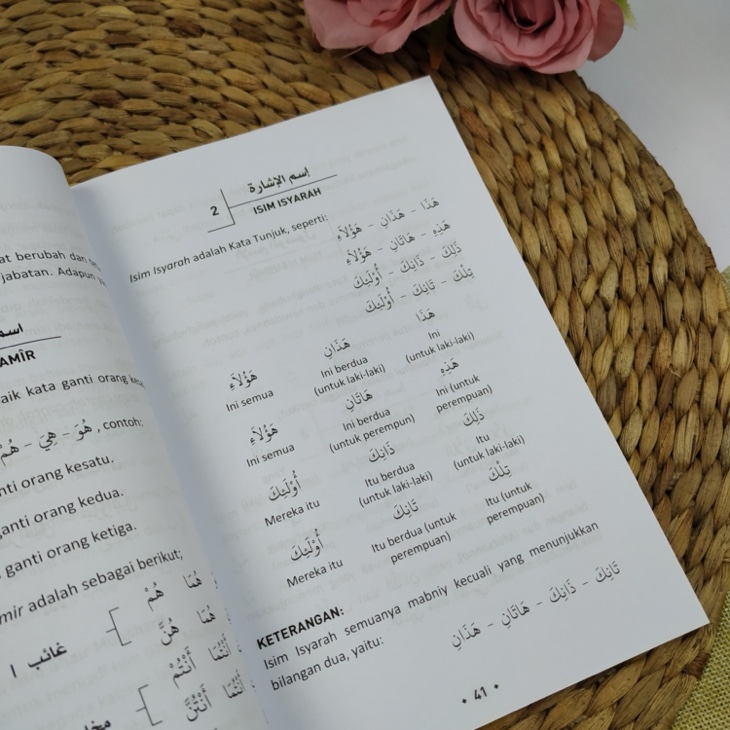 at berubah dan
jabatan. Adapun
اسم
AMÎR
aik kata ganti orang
هُوَ - هِيَ - هُمْ , contoh:
nti orang kesatu.
ganti orang kedua.
ganti orang ketiga.
mir adalah sebagai berikut:
هُمَا هُمْ
هُمَا هُنَّ
غائب
أَنْتُمَا أَنْتُمْ
أَنْتُمَا أَنْتُنَّ
2
إسم الإشارة
ISIM ISYARAH
Isim Isyarah adalah Kata Tunjuk, seperti:
هَذَا - هَذَانِ - هَؤُلَاءِ
هَذِهِ - هَاتَانِ - هَؤُلَاءِ
ذَلِكَ - ذَانِكَ - أُوْلَئِكَ
تِلْكَ - تَانِكَ - أُوْلَئِكَ
هَؤُلَاءِ هَذَانِ هَذَا
Ini semua Ini berdua Ini
(untuk laki-laki) (untuk laki-laki)
هَؤُلَاءِ هَاتَانِ هَذِهِ
Ini semua Ini berdua Ini (untuk
(untuk perempun) perempuan)
أُوْلَئِكَ ذَانِكَ ذَلِكَ
Mereka itu Itu berdua Itu
(untuk laki-laki) (untuk laki-laki)
أُوْلَئِكَ تَانِكَ تِلْكَ
Mereka itu Itu berdua (untuk Itu (untuk
perempuan) perempuan)
KETERANGAN:
Isim Isyarah semuanya mabniy kecuali yang menunjukkan
bilangan dua, yaitu:
تَانِكَ - ذَانِكَ - هَاتَانِ - هَذَانِ
• 41 •